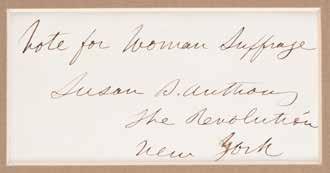 Vote for Woman Suffrage
Susan B. Anthony
The Revolution
New York